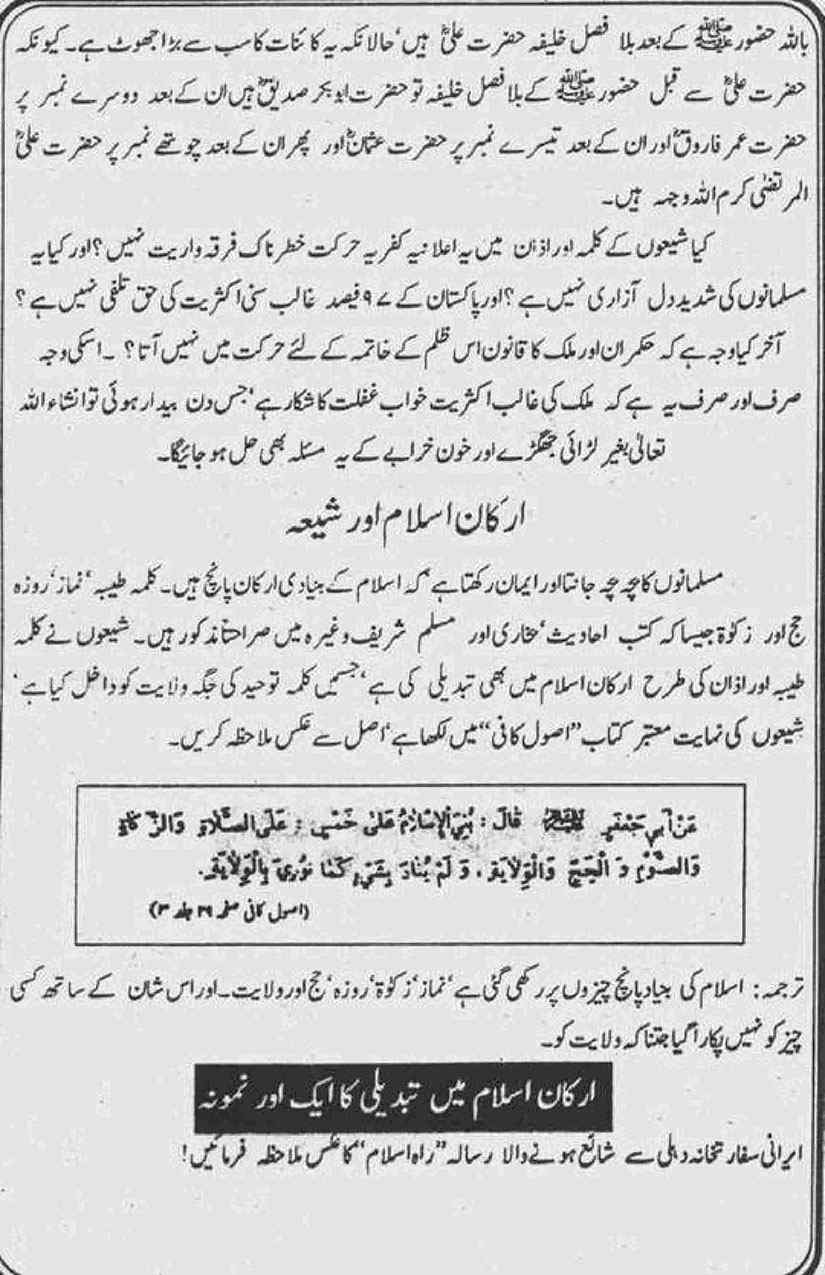 باللہ حضور ﷺ کے بعد بلا فصل خلیفہ حضرت علیؓ ہیں‘ حالانکہ یہ کائنات کا سب سے بڑا جھوٹ ہے۔ کیونکہ
حضرت علیؓ سے قبل حضور ﷺ کے بلا فصل خلیفہ تو حضرت ابوبکر صدیقؓ ہیں ان کے بعد دوسرے نمبر پر
حضرت عمر فاروقؓ اور ان کے بعد تیسرے نمبر پر حضرت عثمانؓ اور پھر ان کے بعد چوتھے نمبر پر حضرت علیؓ
المرتضیٰ کرم اللہ وجہہ ہیں۔
کیا شیعوں کے کلمہ اور اذان میں یہ اعلانیہ کفریہ حرکت خطرناک فرقہ واریت نہیں؟ اور کیا یہ
مسلمانوں کی شدید دل آزاری نہیں ہے؟ اور پاکستان کے ۹۷ فیصد غالب سنی اکثریت کی حق تلفی نہیں ہے؟
آخر کیا وجہ ہے کہ حکمران اور ملک کا قانون اس ظلم کے خاتمہ کے لئے حرکت میں نہیں آتا؟ ۔ اسکی وجہ
صرف اور صرف یہ ہے کہ ملک کی غالب اکثریت خواب غفلت کا شکار ہے‘ جس دن بیدار ہوئی تو انشاء اللہ
تعالیٰ بغیر لڑائی جھگڑے اور خون خرابے کے یہ مسئلہ بھی حل ہو جائیگا۔
ارکان اسلام اور شیعہ
مسلمانوں کا بچہ بچہ جانتا اور ایمان رکھتا ہے‘ کہ اسلام کے بنیادی ارکان پانچ ہیں۔ کلمہ طیبہ‘ نماز‘ روزہ
حج اور زکوٰۃ جیسا کہ کتب احادیث‘ بخاری اور مسلم شریف وغیرہ میں صراحتاً مذکور ہیں۔ شیعوں نے کلمہ
طیبہ اور اذان کی طرح ارکان اسلام میں بھی تبدیلی کی ہے‘ جسمیں کلمہ توحید کی جگہ ولایت کو داخل کیا ہے‘
شیعوں کی نہایت معتبر کتاب ”اصول کافی“ میں لکھا ہے‘ اصل سے عکس ملاحظہ کریں۔
عَنْ أَبِي جَعْفَرٍ قَالَ: بُنِيَ الْإِسْلَامُ عَلَىٰ خَمْسٍ: عَلَى الصَّلَاةِ وَالزَّكَاةِ
وَالصَّوْمِ وَالْحَجِّ وَالْوَلَايَةِ، وَلَمْ يُنَادَ بِشَيْءٍ كَمَا نُودِيَ بِالْوَلَايَةِ.
(اصول کافی صفحہ ۲۹ جلد ۳)
ترجمہ: اسلام کی بنیاد پانچ چیزوں پر رکھی گئی ہے‘ نماز‘ زکوٰۃ‘ روزہ‘ حج اور ولایت۔ اور اس شان کے ساتھ کسی
چیز کو نہیں پکارا گیا جتنا کہ ولایت کو۔
ارکان اسلام میں تبدیلی کا ایک اور نمونہ
ایرانی سفارتخانہ دہلی سے شائع ہونے والا رسالہ ”راہ اسلام“ کا عکس ملاحظہ فرمائیں!